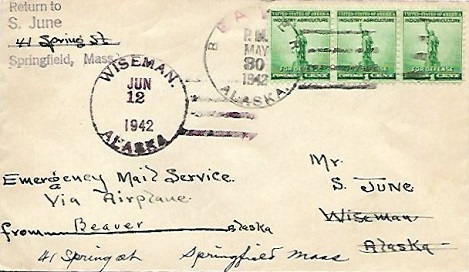 Return to
S. June
41 Spring St.
Springfield, Mass.
WISEMAN.
JUN
12
1942
ALASKA
BEAVER
P.M.
MAY
30
1942
ALASKA.
UNITED STATES OF AMERICA
INDUSTRY AGRICULTURE
FOR DEFENSE
1 CENT
UNITED STATES OF AMERICA
INDUSTRY AGRICULTURE
FOR DEFENSE
1 CENT
UNITED STATES OF AMERICA
INDUSTRY AGRICULTURE
FOR DEFENSE
1 CENT
Mr.
S. JUNE
Wiseman
Alaska
Emergency Mail Service
Via Airplane
from Beaver Alaska
41 Spring St Springfield Mass